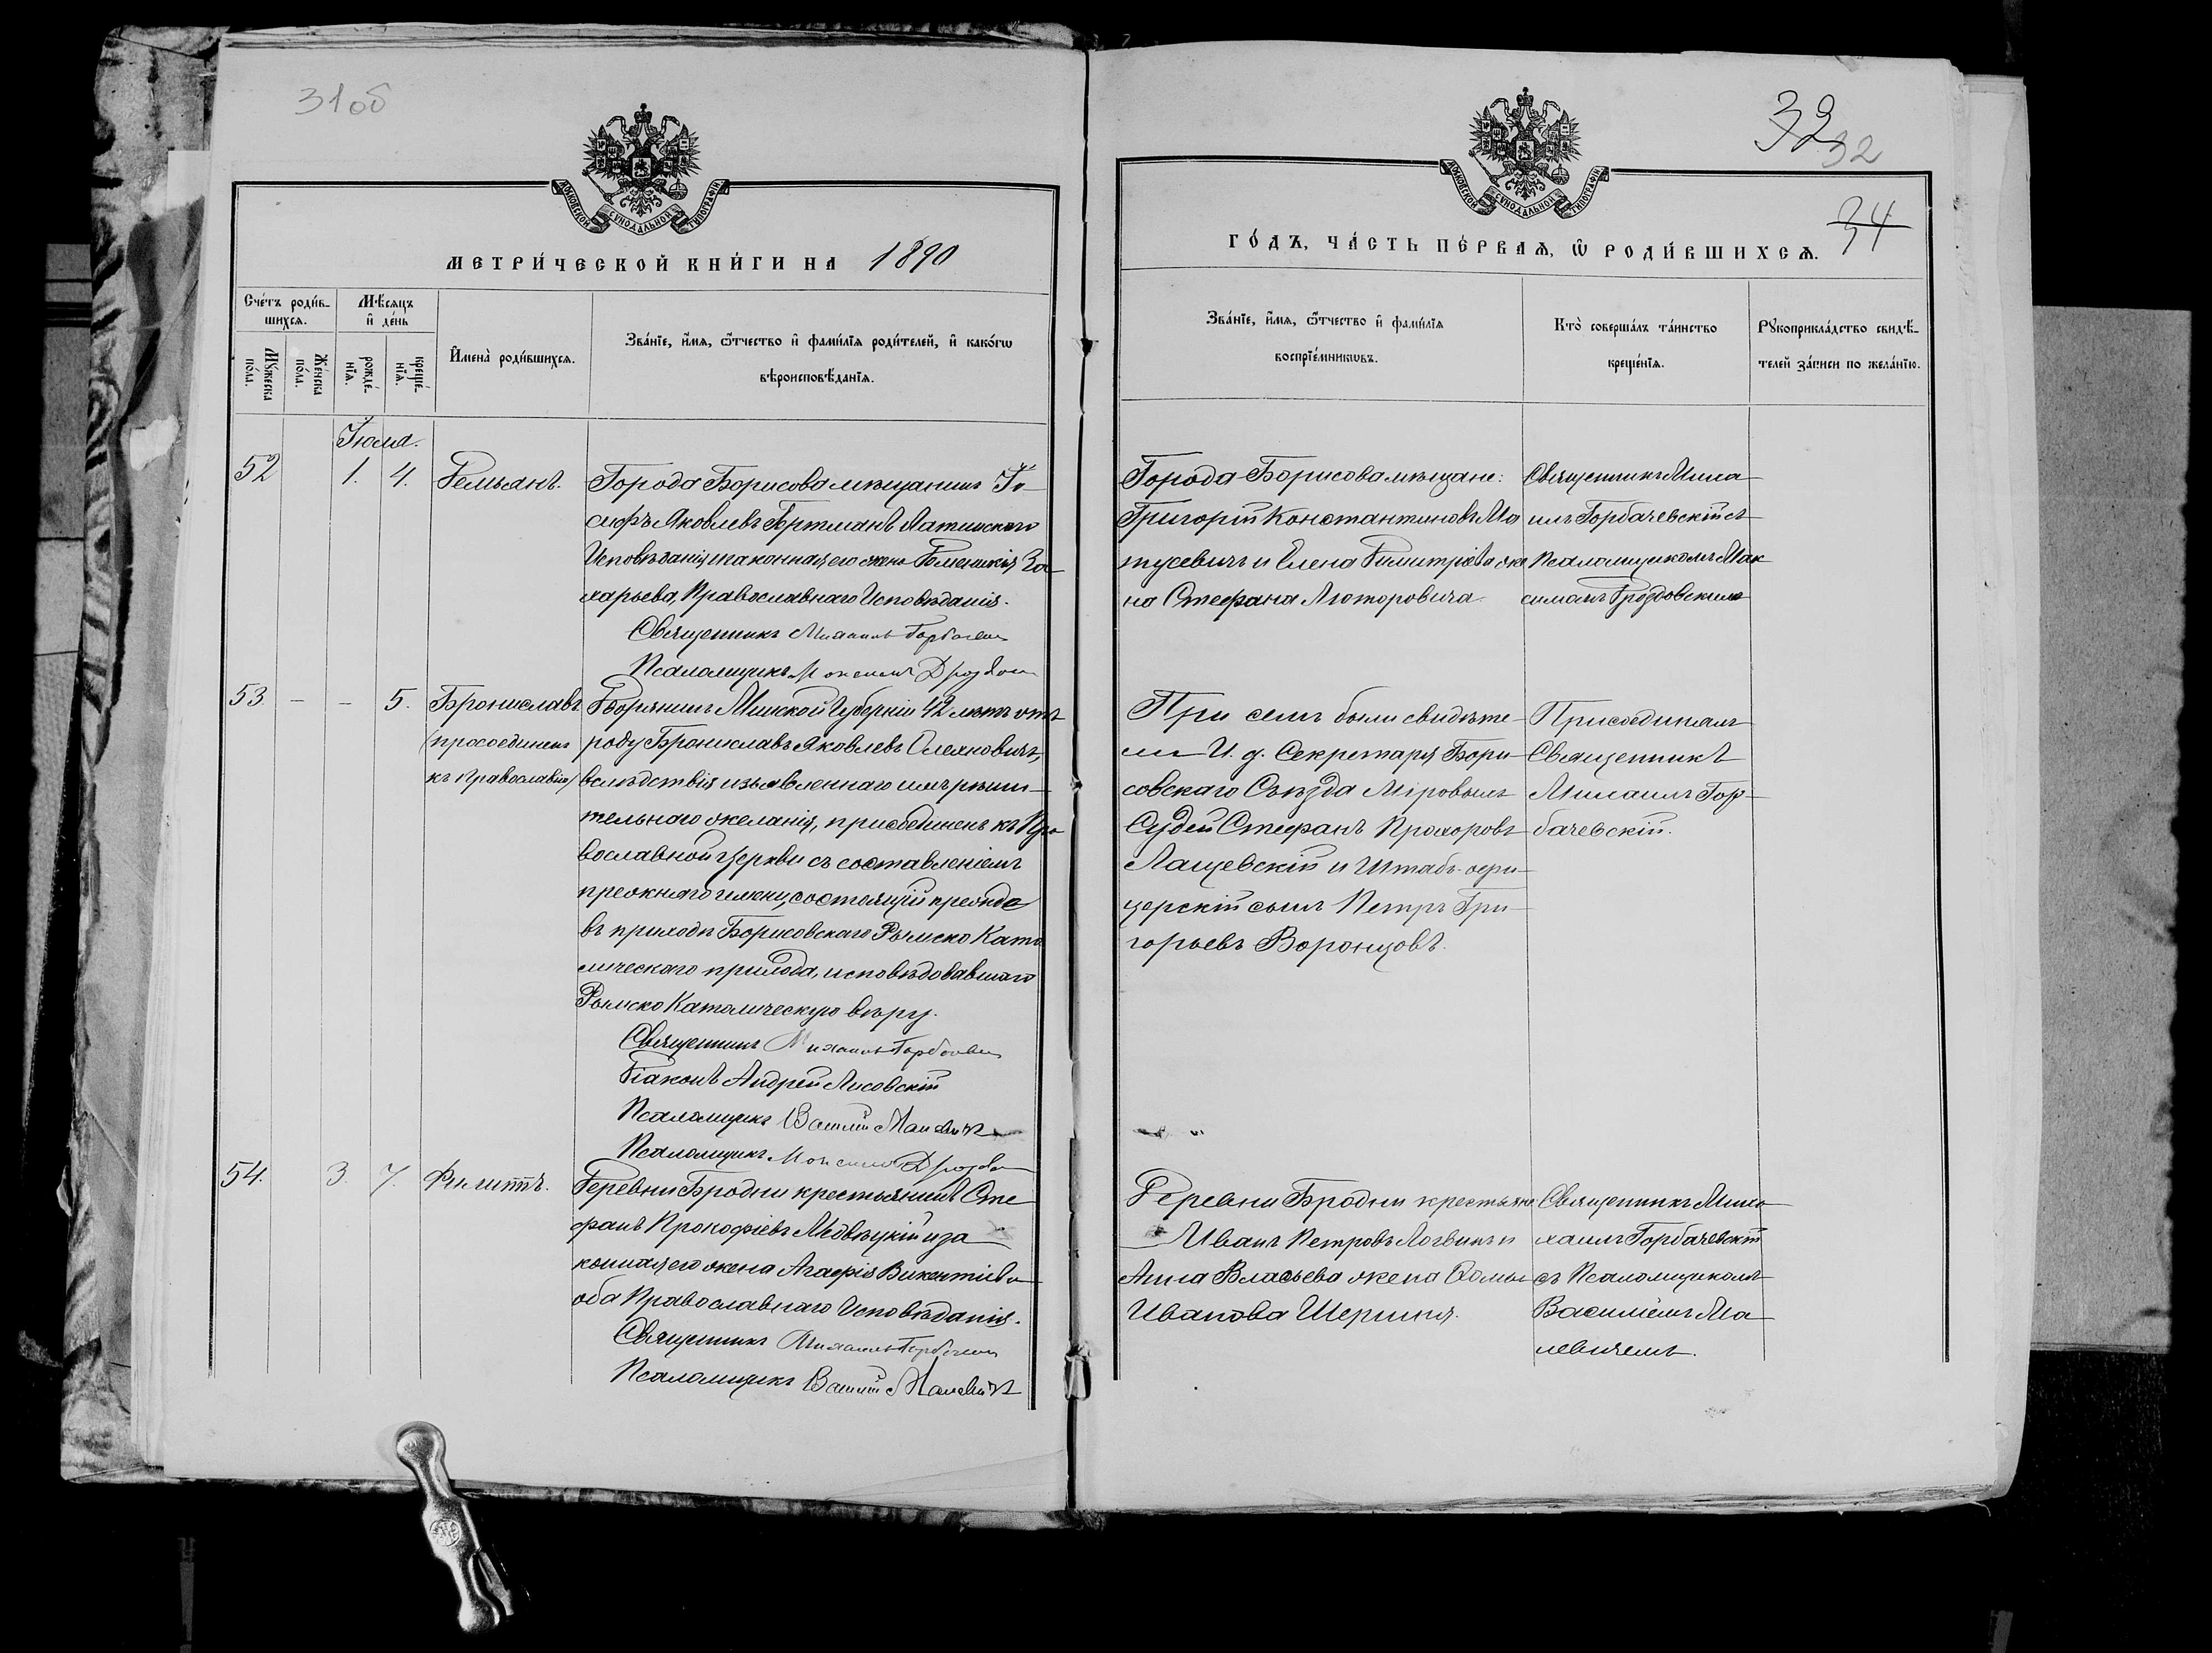 31об
МОСКОВСКОЙ СѴНОДАЛЬНОЙ ТИПОГРАФІИ
МЕТРИ́ЧЕСКОЙ КНИ́ГИ НА 1890
Сче́тъ роди́в-
шихсѧ.
Мꙋ́жеска по́ла.
Же́нска по́ла.
Мѣ́сѧцъ
и҆ де́нь
рожде́-
нїѧ.
креще́-
нїѧ.
И҆мена̀ роди́вшихсѧ.
Зва́нїе, и҆́мѧ, ѻ҆́тчество и҆ фами́лїѧ роди́телей, и҆ како́гѡ
вѣроисповѣ́данїѧ.
Іюля.
52 1. 4. Гемьянъ.
Города Борисова мѣщанинъ Іо-
сифъ Яковлевъ Гертманъ Латинскаго
Исповѣданія и законная его жена За-
харьева, Православнаго Исповѣданія.
Священникъ Михаилъ Горбачев
Псаломщикъ Максимъ Дроздов
53. – – 5. Брониславъ
(присоединенъ
къ православію)
Дворянинъ Минской Губерніи 42 лѣтъ отъ
роду Брониславъ Яковлевъ Олехновичъ,
вслѣдствія изъявленнаго имъ рѣши-
тельнаго желанія, присоединенъ къ Пра-
вославной церкви съ составленіемъ
прежняго имени, состоящій прежде
въ приходѣ Борисовскаго Римско Като-
лическаго прихода, исповѣдовавшаго
Римско Католическую вѣру.
Священникъ Михаилъ Горбачев
Діаконъ Андрей Лисовскій
Псаломщикъ Василій Малевичъ
Псаломщикъ Максимъ Дроздов
54. 3. 7. Филиппъ.
Деревни Бродни крестьянинъ Сте-
фанъ Прокофіевъ и за
конная его жена Агафія Викентіева
оба Православнаго Исповѣданія.
Священникъ Михаилъ Горбачев
Псаломщикъ Василій Малевичъ
32
32
34
МОСКОВСКОЙ СѴНОДАЛЬНОЙ ТИПОГРАФІИ
ГО́ДЪ, ЧА́СТЬ ПЕ́РВАѦ, Ѡ҆ РОДИ́ВШИХСѦ.
Зва́нїе, и҆́мѧ, ѻ҆́тчество и҆ фами́лїѧ
воспрїе́мникѡвъ.
Кто̀ соверша́лъ та́инство
креще́нїѧ.
Рꙋкоприкла́дство свидѣ́-
телей за́писи по жела́нїю.
Города Борисова мѣщане:
Григорій Константиновъ Ма
тусевичъ и Елена Димитріева же
на Стефана Лютаровича
Священникъ Миха
илъ Горбачевскій съ
Псаломщикомъ Мак
симомъ Дроздовскимъ
При семъ были свидѣте-
ли И. д. Секретаря Бори-
совскаго Съѣзда Мировыхъ
Судей Стефанъ Прохоровъ
Лащевскій и Штабъ-офи-
церскій сынъ Петръ Гри-
горьевъ Воронцовъ.
Присоединялъ
Священникъ
Михаилъ Гор-
бачевскій.
Деревни Бродни крестьяне
Иванъ Петровъ Логвинъ и
Анна Власьева жена Ѳомы
Иванова Шершня.
Священникъ Миха
хаилъ Горбачевскій
съ Псаломщикомъ
Василіемъ Ма-
левичемъ.